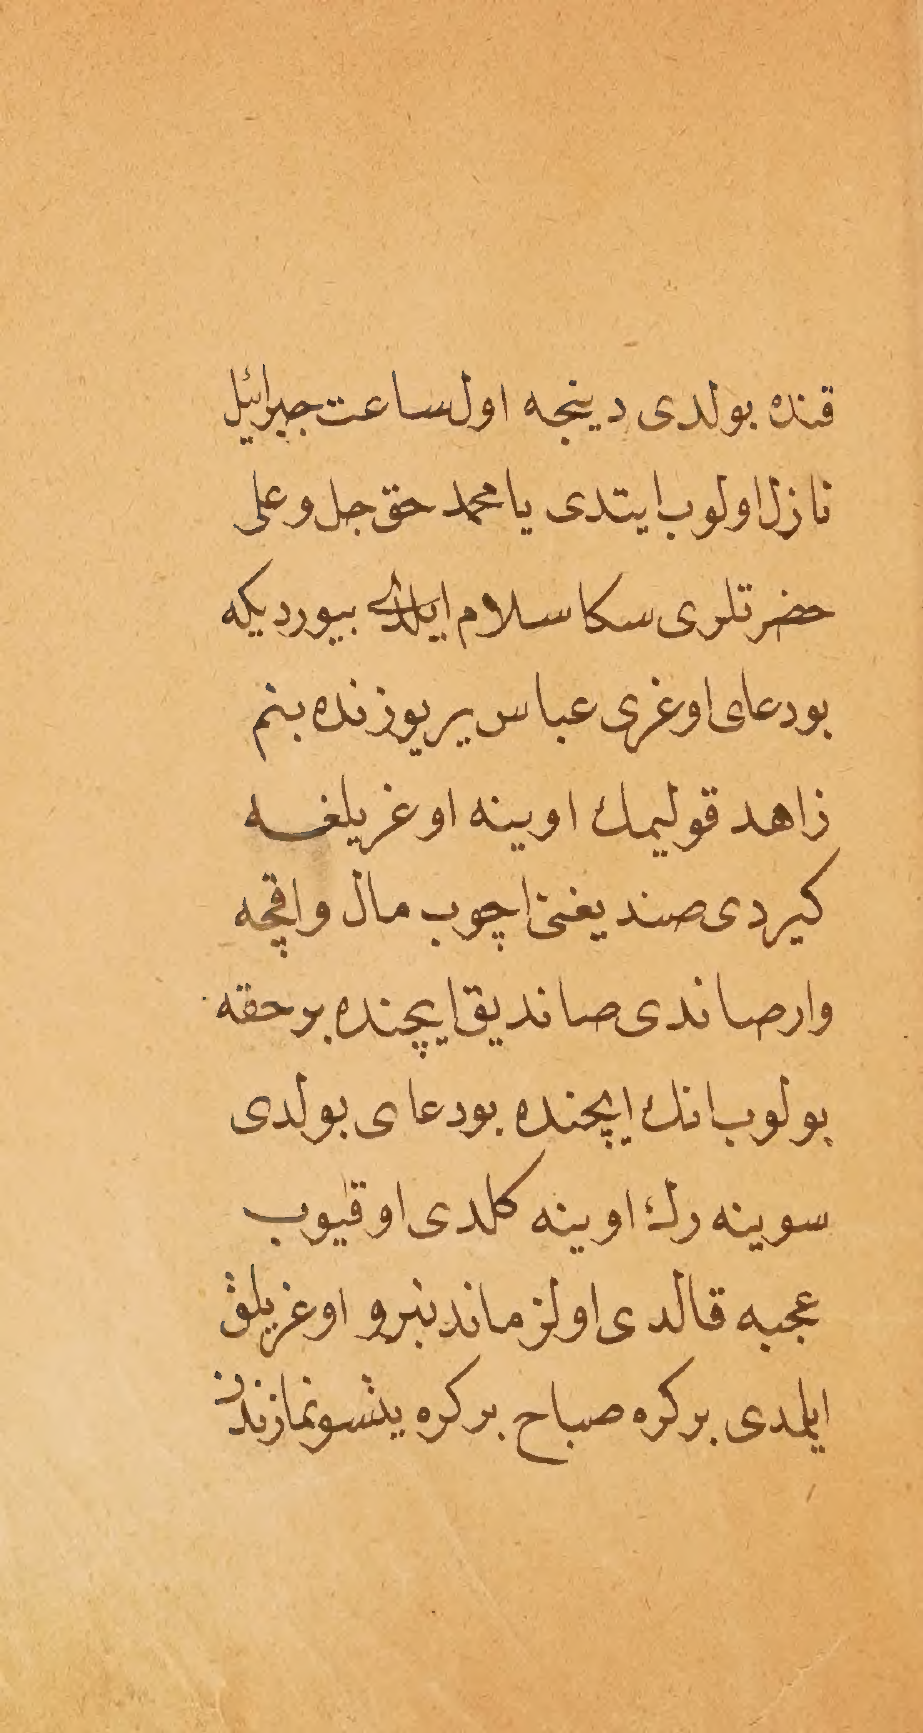 قنده بولدی دینجه اول ساعت جبرائیل
نازل اولوب ایتدی یا محمد حق جل و علی
حضرتلری سکا سلام ایلدی بیوردیکه
بودعای اوغری عباس یر یوزنده بنم
زاهد قولیمك اوینه اوغریلغه
کیردی صندیغنی اچوب مال و اقچه
وار صاندی صاندیق ایچنده بر حقه
بولوب انك ایچنده بودعای بولدی
سوینه رك اوینه کلدی اوقیوب
عجبه قالدی اول زماندنبرو اوغریلق
ایلمدی بر کره صباح بر کره یتسو نمازندن